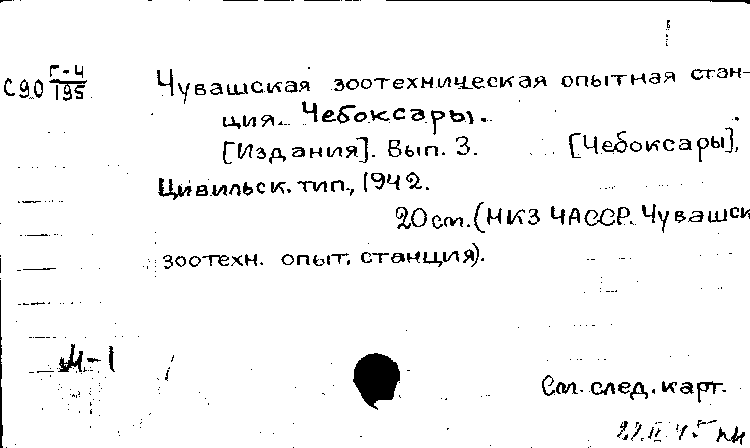 С90 Г-4/195 Чувашская зоотехническая опытная стан-
ция. Чебоксары.
[Издания]. Вып. 3. [Чебоксары],
Цивильск. тип., 1942.
20 см. (НКЗ ЧАССР. Чувашск
зоотехн. опыт. станция).
М-1
См. след. карт.